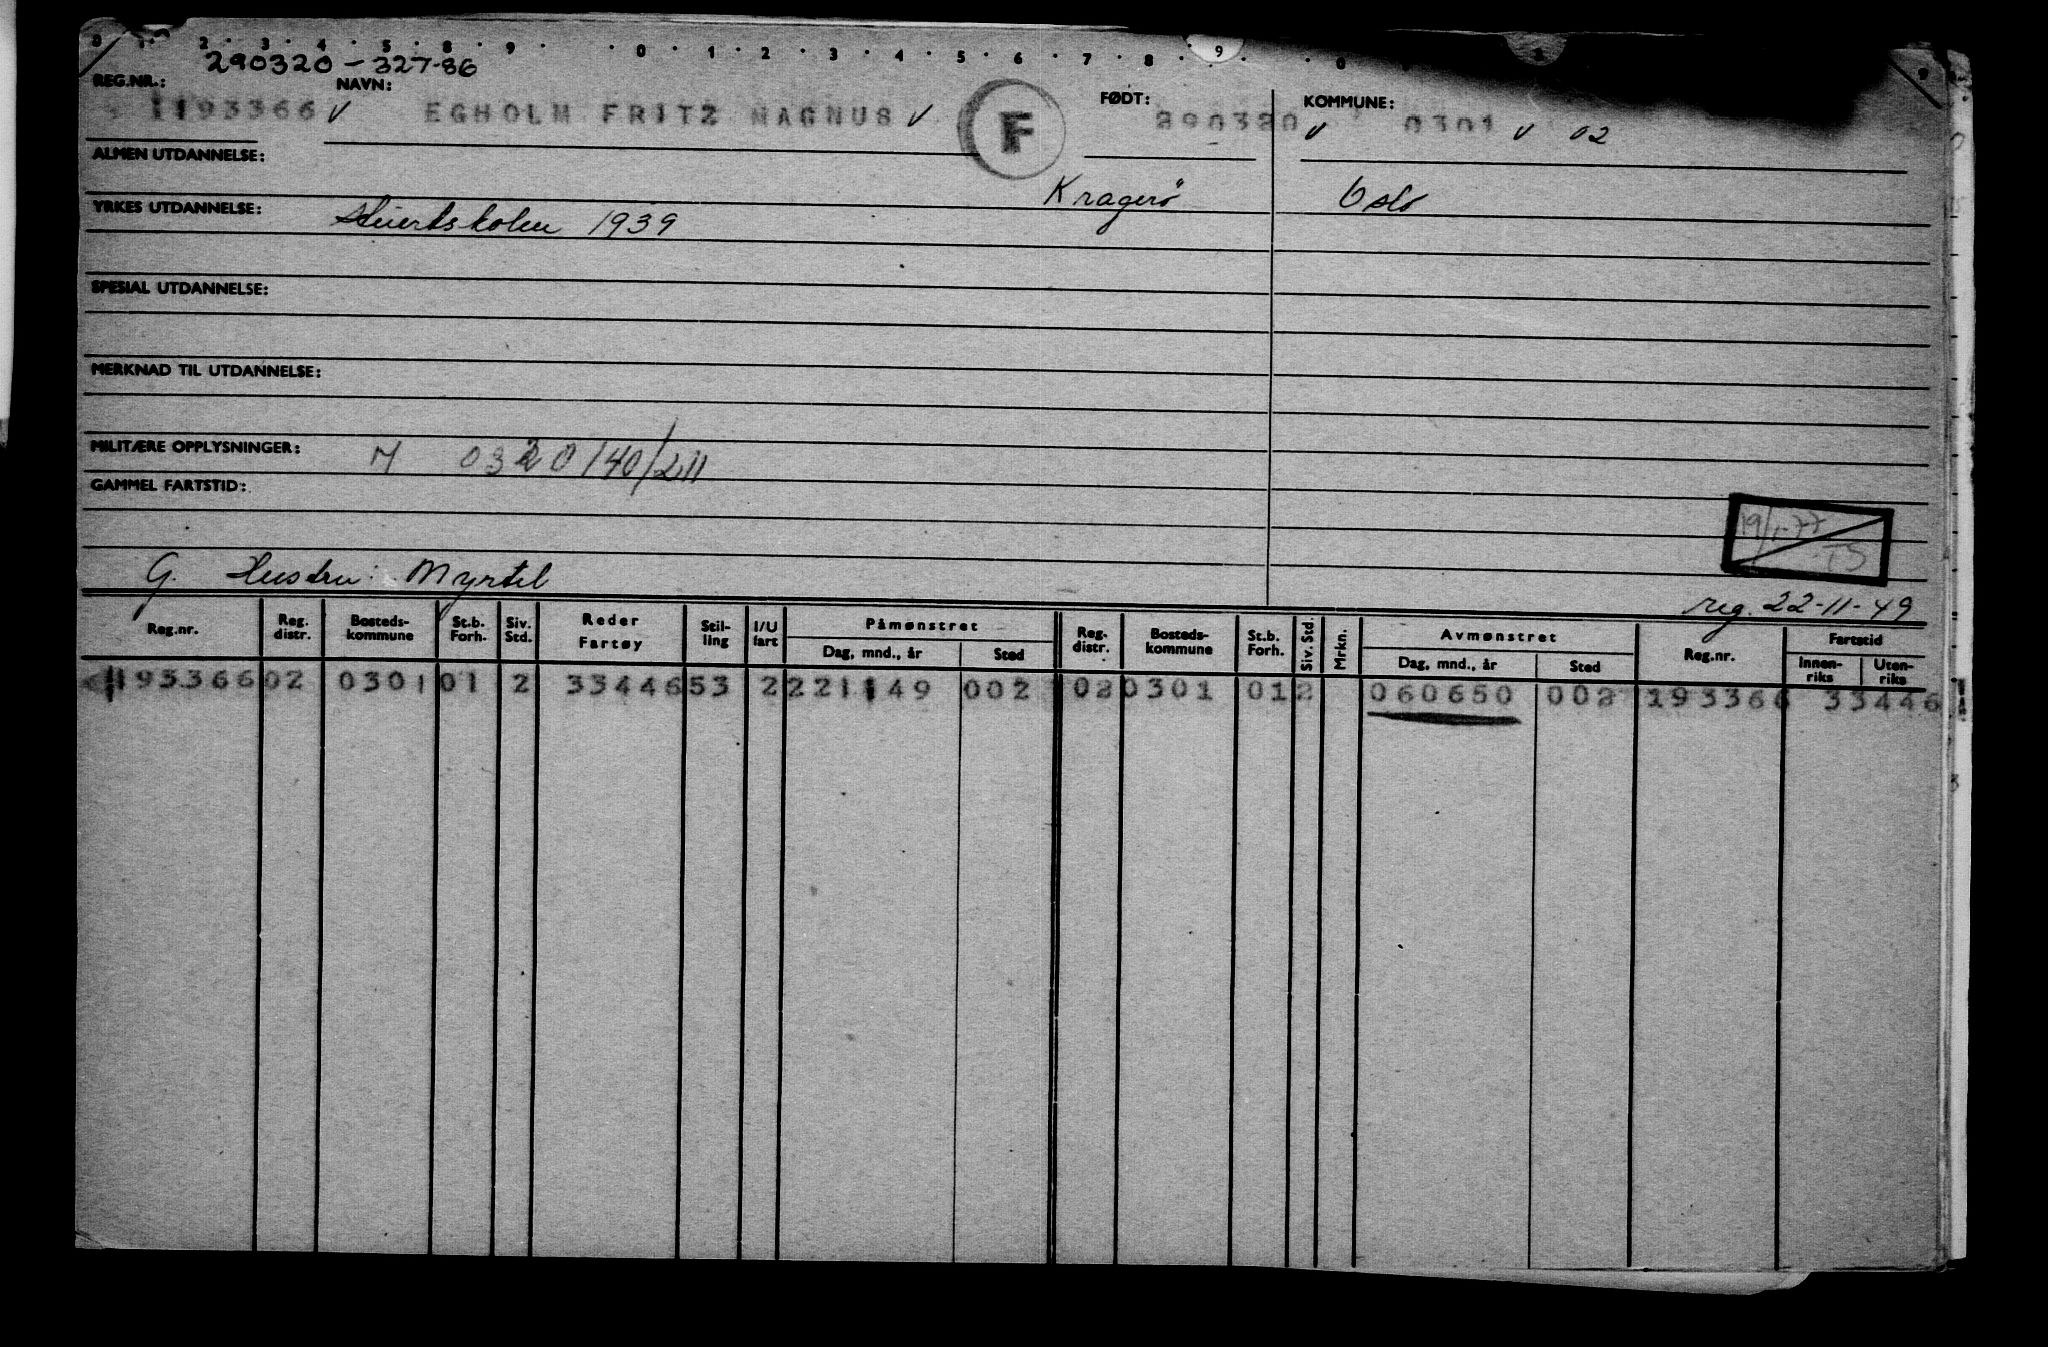 0 · 1 · 2 · 3 · 4 · 5 · 8 · 9 · · 0 · 1 · 2 · 3 · 4 · 5 · 6 · 7 · 8 · 9 · · 0 9
290320 - 327-86
REG.NR.: NAVN: FØDT: KOMMUNE:
1193366 V EGHOLM FRITZ MAGNUS V F 290320 V 0301 V 02
ALMEN UTDANNELSE:
Kragerö Oslo
YRKES UTDANNELSE: 1939
SPESIAL UTDANNELSE:
MERKNAD TIL UTDANNELSE:
MILITÆRE OPPLYSNINGER: M 0320/40/211
GAMMEL FARTSTID:
19/1-77
TS
G. Hustru: Myrtel
reg. 22-11-49
Reg.nr. Reg. distr. Bosteds-kommune St.b. Forh. Siv. Std. Reder Fartøy Stil-ling I/U fart Påmønstret Dag, mnd., år Sted Reg. distr. Bosteds-kommune St.b. Forh. Siv. Std. Mrkn. Avmønstret Dag, mnd., år Sted Reg.nr. Fartstid Innen-riks Uten-riks
1193366 02 0301 01 2 33446 53 2 221149 002 02 0301 01 2 060650 002 193366 33446